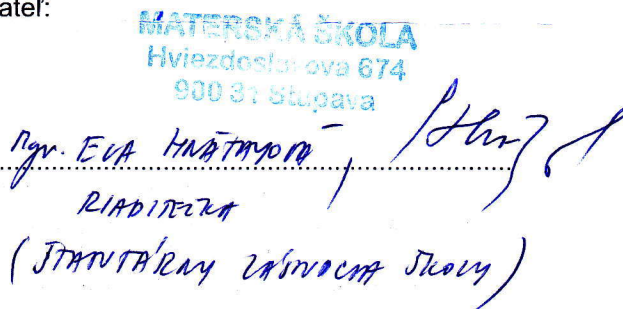 ateľ:
MATERSKÁ ŠKOLA
Hviezdoslavova 674
900 31 Stupava
Mgr. EVA
RIADITEĽKA
(ŠTATUTÁRNY ZÁSTUPCA ŠKOLY)